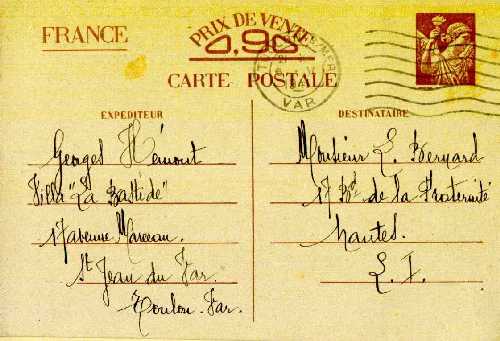 FRANCE
PRIX DE VENTE
0,90
CARTE POSTALE
VAR
EXPÉDITEUR
Georges Hémont
Villa "La Bastide"
17 avenue Marceau.
St Jean du Var
Toulon. Var.
DESTINATAIRE
Monsieur L. Bernard
17 Bd de la Fraternité
Nantes.
L. I.